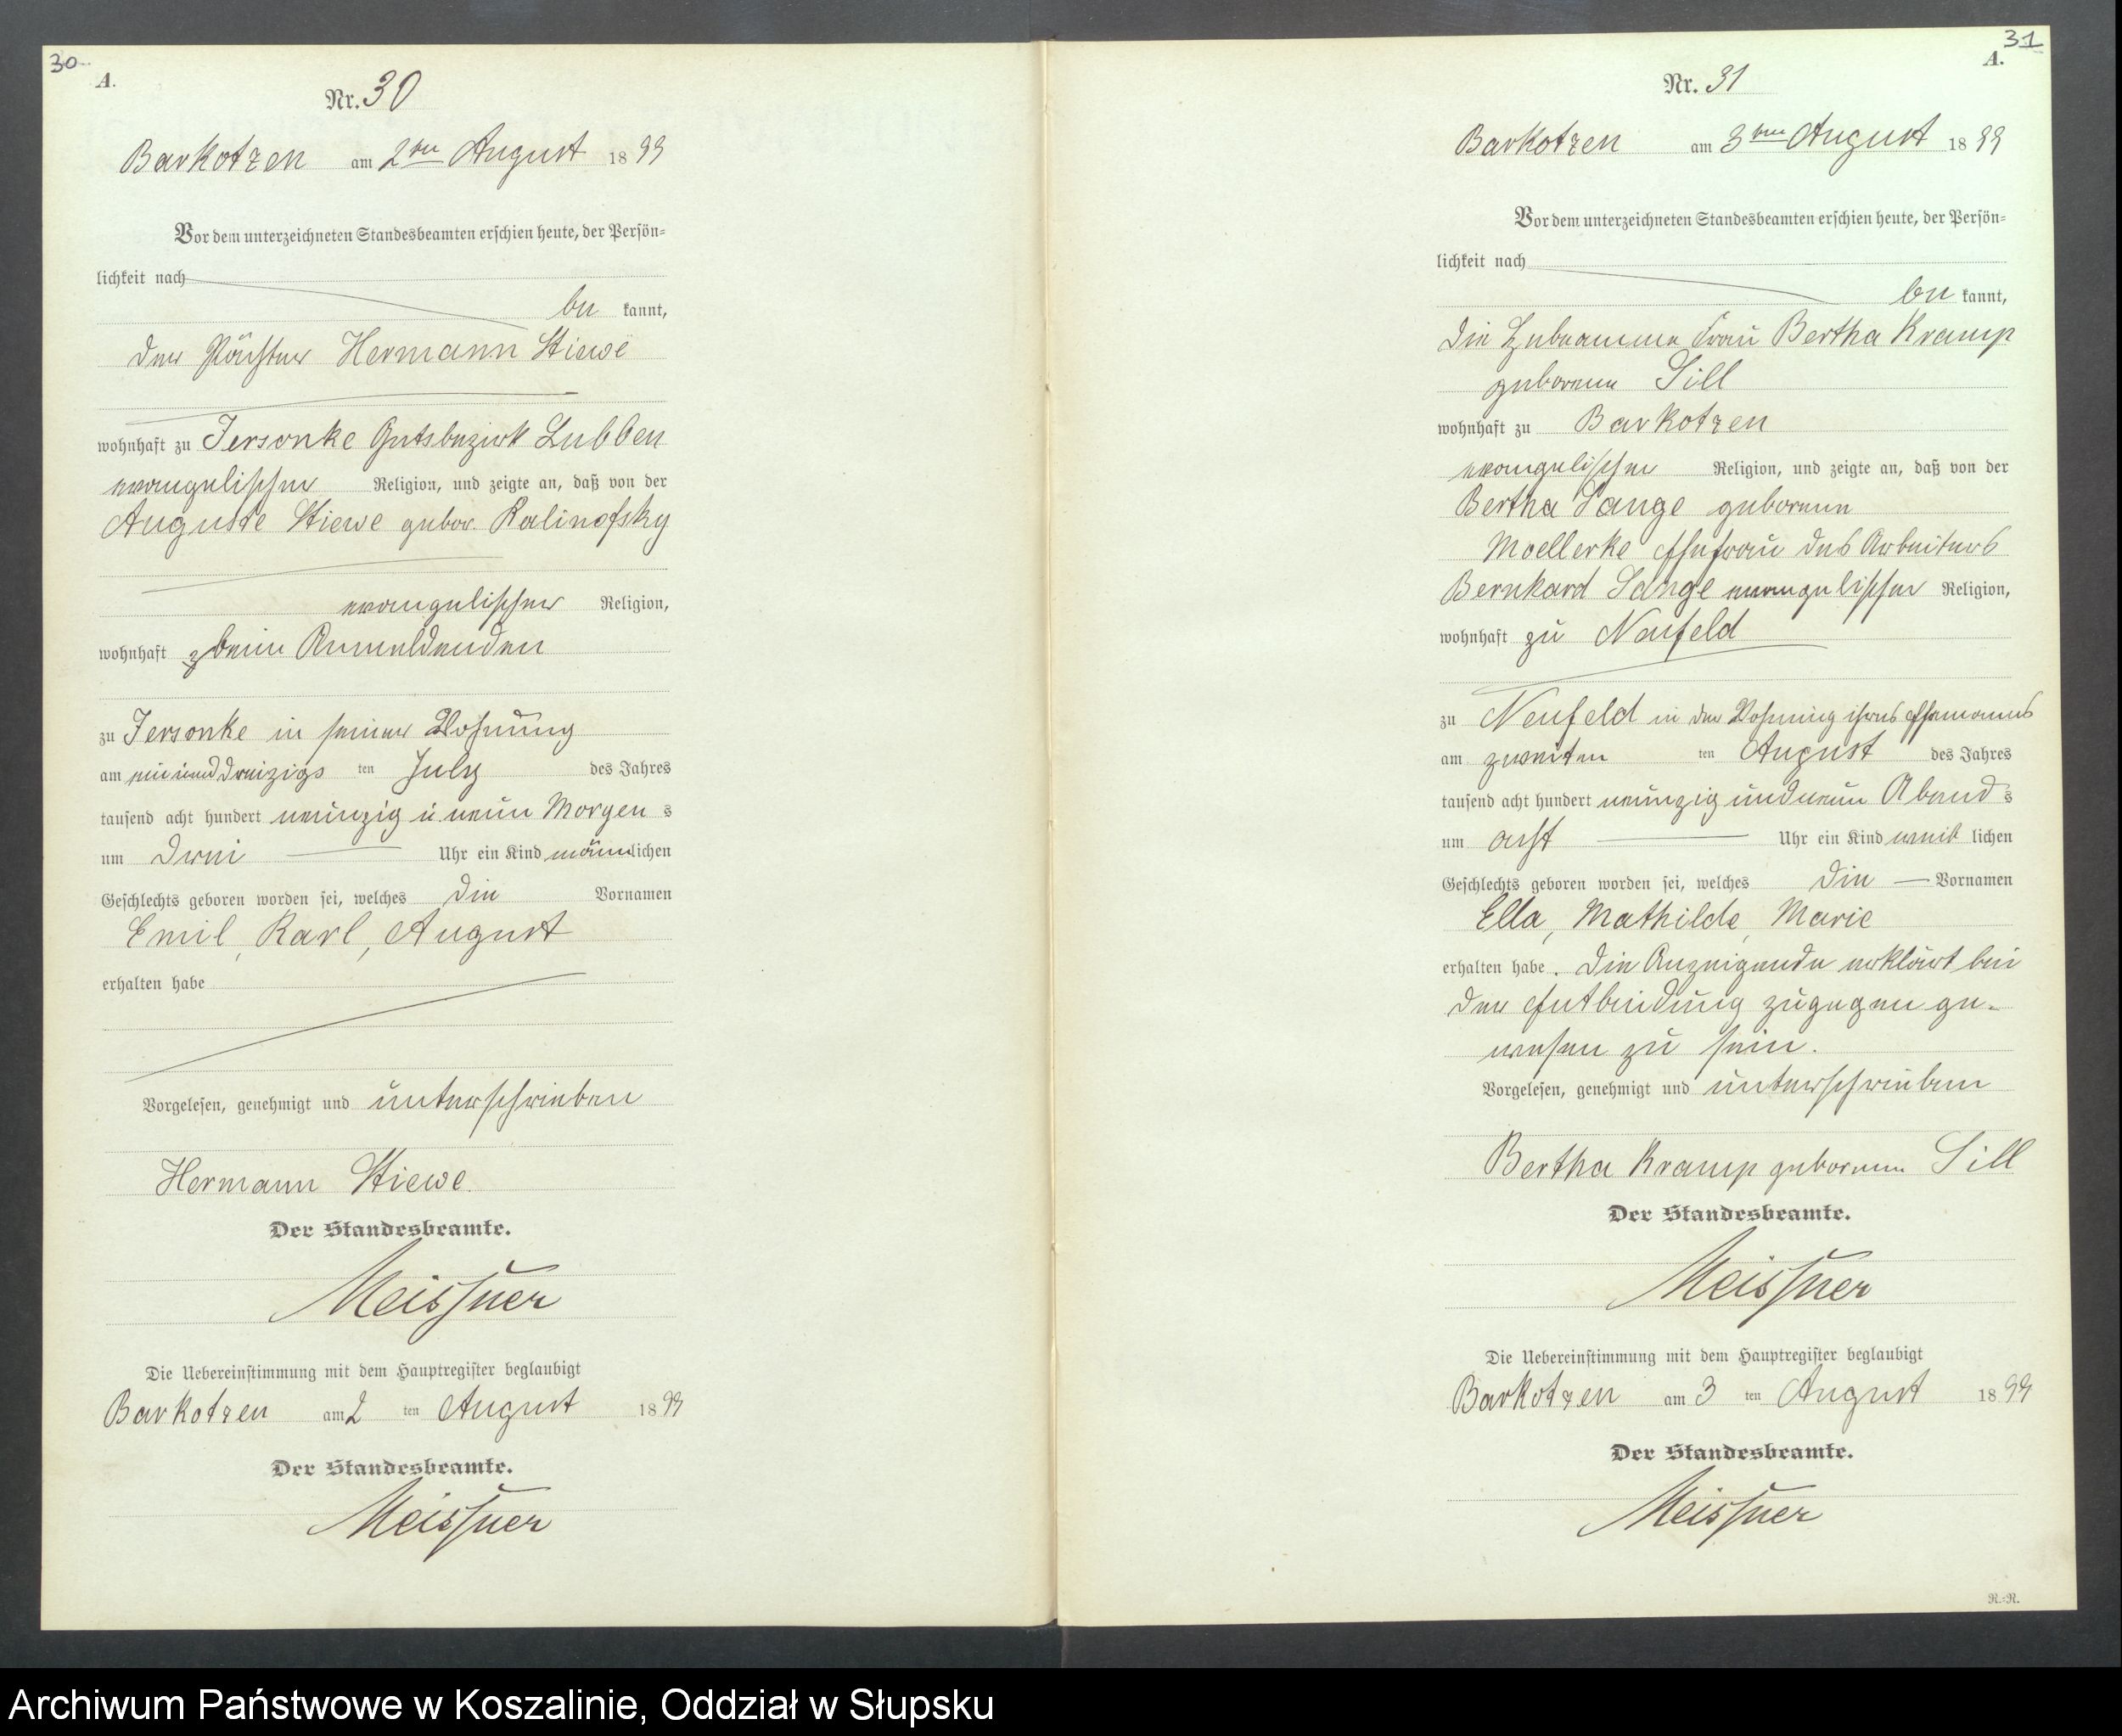 30
A.
Nr. 30
Barkotzen am 2ten August 1899
Vor dem unterzeichneten Standesbeamten erschien heute, der Persön=
lichkeit nach
be kannt,
der Pächter Hermann Stiewe
wohnhaft zu Jersonke Gutsbezirk Lubben
evangelischer Religion, und zeigte an, daß von der
Auguste Stiewe gebor. Kalinofsky
evangelischer Religion,
wohnhaft beim Anmeldenden
zu Jersonke in seiner Wohnung
am einunddreizigs ten July des Jahres
tausend acht hundert neunzig u. neun Morgen s
um drei Uhr ein Kind männlichen
Geschlechts geboren worden sei, welches die Vornamen
Emil, Karl, August
erhalten habe
Vorgelesen, genehmigt und unterschrieben
Hermann Stiewe.
Der Standesbeamte.
Meissner
Die Uebereinstimmung mit dem Hauptregister beglaubigt
Barkotzen am 2 ten August 1899
Der Standesbeamte.
Meissner
31
A.
Nr. 31
Barkotzen am 3ten August 1899
Vor dem unterzeichneten Standesbeamten erschien heute, der Persön=
lichkeit nach
be kannt,
die Hebeamme Frau Bertha Kramp
geborene Sill
wohnhaft zu Barkotzen
evangelischer Religion, und zeigte an, daß von der
Bertha Lange geborene
Moellerke Ehefrau des Arbeiters
Bernhard Lange evangelischer Religion,
wohnhaft zu Neufeld
zu Neufeld in der Wohnung ihres Ehemannes
am zweiten ten August des Jahres
tausend acht hundert neunzig und neun Abend s
um acht Uhr ein Kind weib lichen
Geschlechts geboren worden sei, welches die Vornamen
Ella, Mathilde, Marie
erhalten habe. Die Anzeigende erklärt bei
der Entbindung zugegen ge-
wesen zu sein.
Vorgelesen, genehmigt und unterschrieben
Bertha Kramp geborene Sill
Der Standesbeamte.
Meissner
Die Uebereinstimmung mit dem Hauptregister beglaubigt
Barkotzen am 3 ten August 1899
Der Standesbeamte.
Meissner
R.=R.
Archiwum Państwowe w Koszalinie, Oddział w Słupsku